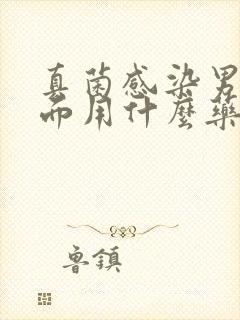 真菌感染男
而用什麼藥
魯鎮